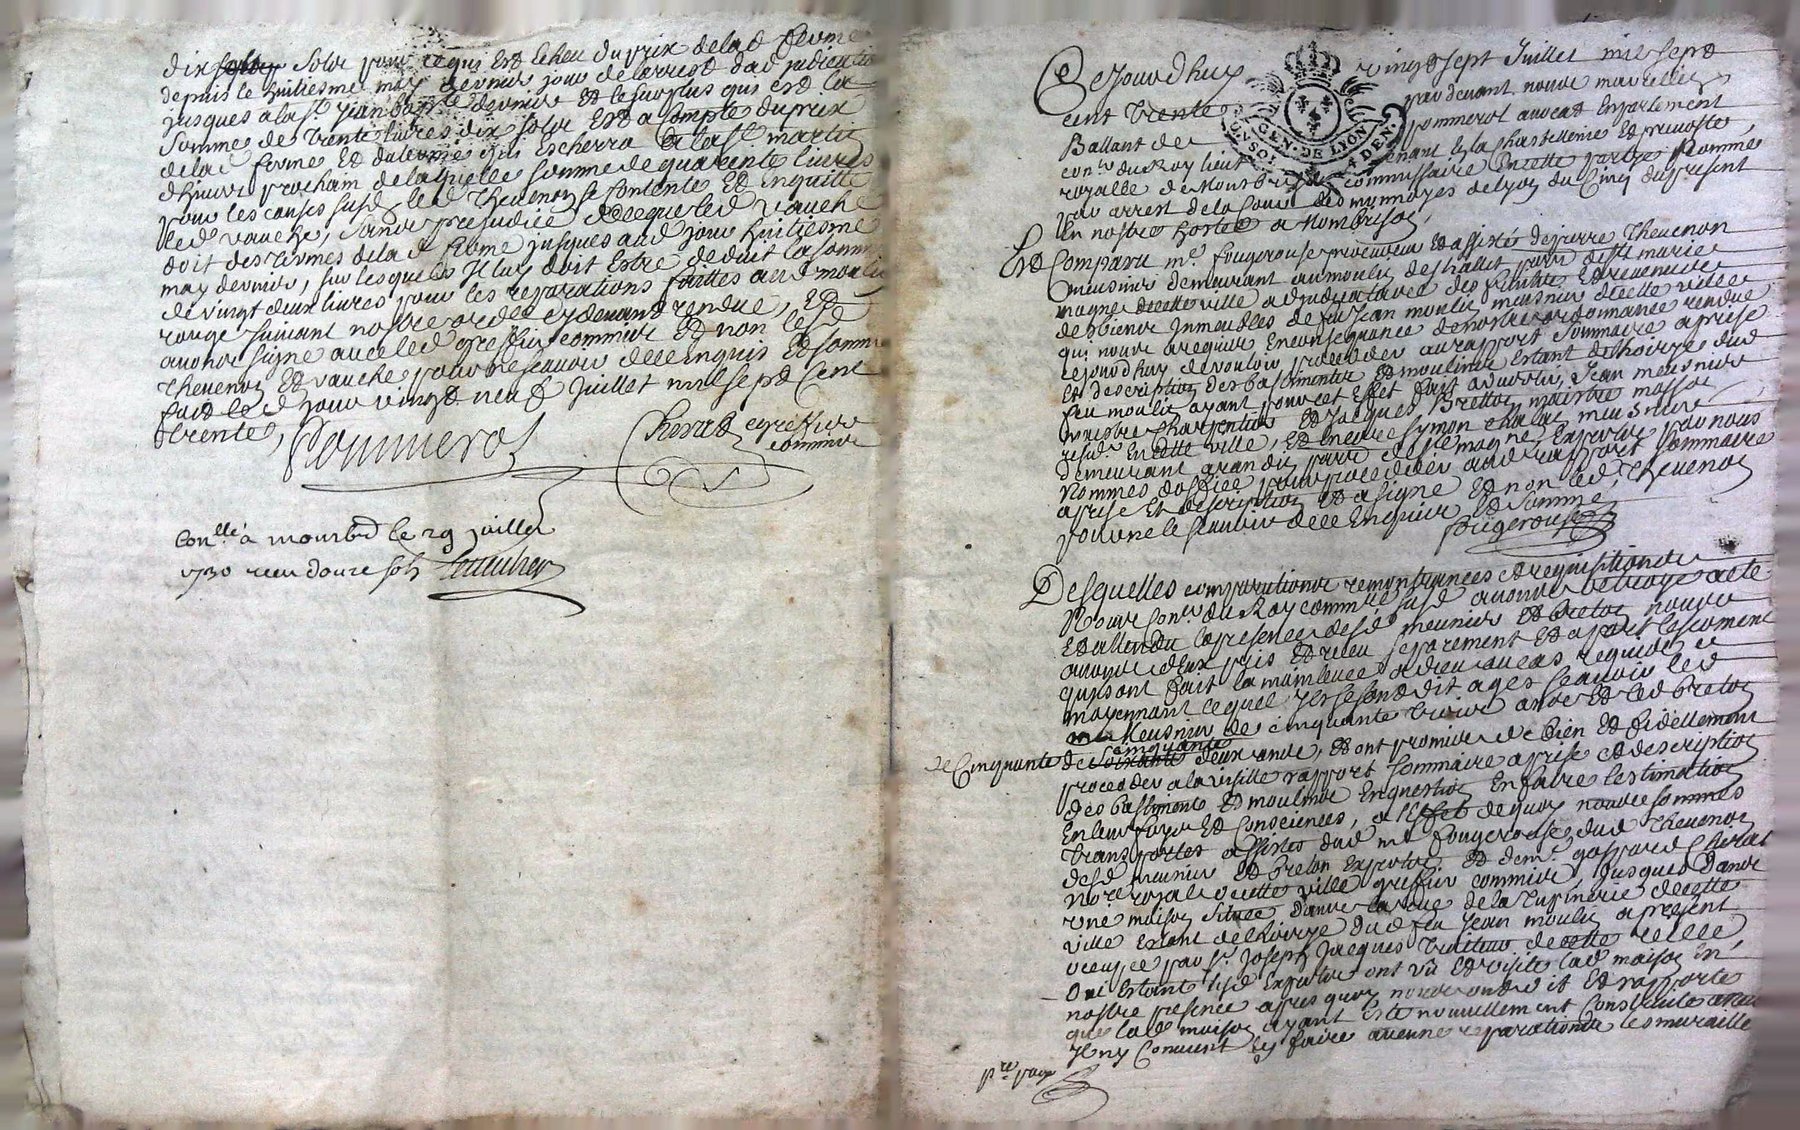 dix solz pour ce qui est escheu du prix de lad ferme
depuis le huitiesme may dernier jour de larrest dadjudication
jusques a la st Jean baptiste dernier Et le surplus qui est la
somme de trente livres dix solz Est a Compte du prix
de lad ferme Et du terme qui Escherra a la st martin
dhiver prochain de laquelle somme de quarente livres
pour les causes susd led Thevenon se Contente Et En quitte
led vauche, sans prejudice de ce que led vauche
doit des termes de lad ferme jusques aud jour huitiesme
may dernier, sur lesquels Il luy doit Estre deduit la somme
de vingt deux livres pour les reparations faittes aud moulin
rouge suivant nostre ordce cy devant rendue, Et
avons signe avec led greffier commis Et non lesd
Thevenon Et vauche pour ne scavoir de ce enquis Et sommes
fait led jour vingt neuf Juillet mil sept Cent
trente,
Pommerol
Cherat greffier
commis
Conllé a mombd le 29 juillet
1730 receu douze sols
Cejourdhuy vingt sept Juillet mil sept
cent trente pardevant nous marcellin
Ballant de pommerol avocat En parlement
conr du Roy lieutenant En la chastellenie Et prevosté
royalle de Monbrison commissaire En cette partye Nomme
par arrest de la Cour des monnoyes de lyon du Cinq du present
En nostre hostel a Mombrison,
GEN. DE LYON
4 DEN.
Est Comparu me fougerouse procureur Et assisté de pierre Thevenon
meusnier demeurant au moulin
magne de cette ville adjudicataire des fruits Et revenus
des biens Immeubles de feu Jean moulin meusnier de cette ville
qui nous a requis En consequance de nostre ordonnance rendue
cejourdhuy de vouloir proceder au raport sommaire aprise
Et description des bastimentz Et moulins Estant de lhoirye dud
feu moulin ayant pour cet Effet fait advertir, Jean meusnier
maistre charpentier Et Jacques Bretton maistre masson
resid En cette ville, Et Encore symon chalas meusnier
demeurant
Nommes doffice pour proceder aud rapport sommaire
aprise Et description Et a signe Et non led Thevenon
pour ne le scavoir de ce Enquis Et somme
fougerouse
Desquelles comparutions remontrances Et requisitions
Nous Conr du Roy commre susd avons octroye acte
Et attendu la presence desd meunier Et Breton nous
avons deux pris Et receu separement Et a part le serment
quils ont fait la main levee a dieu au cas requis
moyennant lequel Ils se sont dit ages scavoir led
Meusnier de cinquante trois ans Et led Breton
de Cinquante de deux ans, Et ont promis de bien Et fidellement
proceder a la visitte rapport sommaire aprise Et description
des bastiments Et moulins En question En faire lestimation
En leur foye Et Consciences, a leffet de quoy nous sommes
transportes assistes dud me fougerouse, dud Thevenon
desd meunier Et Breton Expertz Et de me gaspard Cherat
nore royal de cette ville greffier commis, Jusques Dans
une maison située dans la rue de la tupinerie de cette
ville Estant de lhoirye dud feu Jean moulin a present
occupee par sr Joseph Jacques traiteur de cette ville
Ou Estant lesd Expertz ont vû Et visite lad maison En
nostre presence apres quoy nous ont dit Et rapporte
que lad maison ayant Este nouvellement Construite
Il ny Convient En faire aucune reparations les muraille
pre page